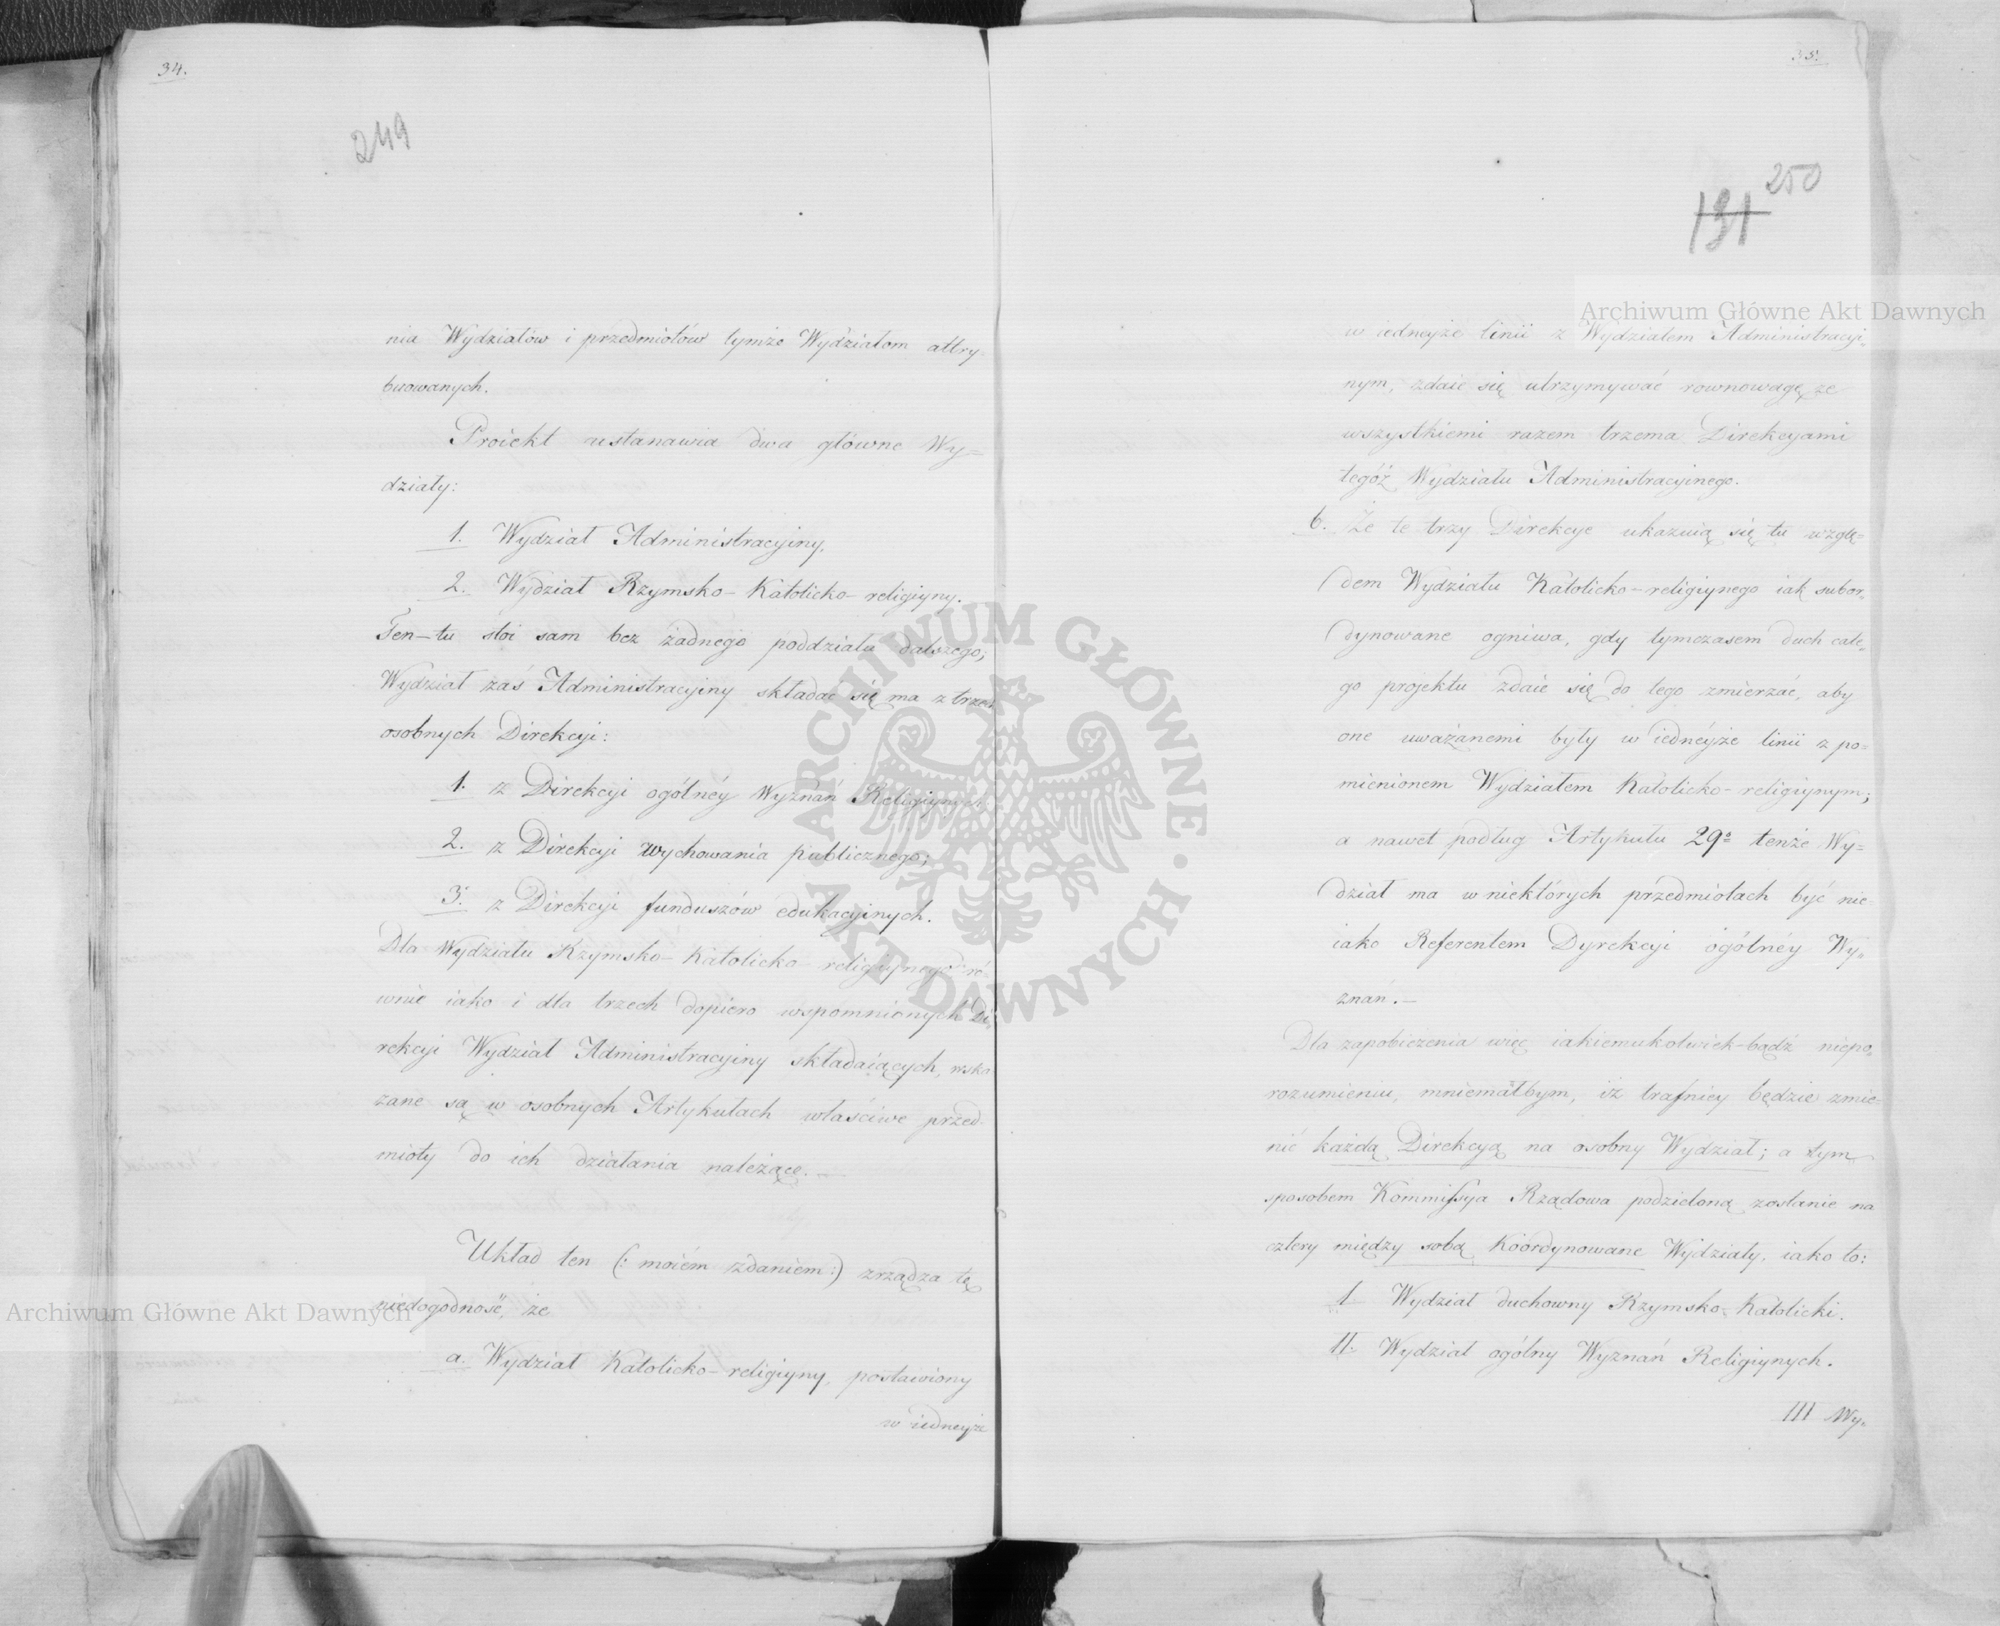 34.
249
nia Wydziałów i przedmiotów tymże Wydziałom attry-
buowanych.
Proiekt ustanawia dwa główne Wy=
działy:
1. Wydział Administracyiny.
2. Wydział Rzymsko-Katolicko-religiyny.
Ten-tu stoi sam bez żadnego poddziału dalszego;
Wydział zaś Administracyiny składać się ma z trzech
osobnych Direkcyi:
1. z Direkcyi ogólnéy Wyznań Religiynych
2. z Direkcyi wychowania publicznego;
3. z Direkcyi funduszów edukacyinych.
Dla Wydziału Rzymsko-Katolicko-religiynego ró-
wnie iako i dla trzech dopiero wspomnionych Di-
rekcyi Wydział Administracyiny składaiących, wska
zane są w osobnych Artykułach właściwe przed-
mioty do ich działania należące.—
Układ ten (: moiém zdaniem :) zrządza tę
niedogodność, że
a. Wydział Katolicko-religiyny, postawiony
w iedneyże
35.
250
131
w iedneyże linii z Wydziałem Administracyi=
nym, zdaie się utrzymywać rownowagę ze
wszystkiemi razem trzema Direkcyami
tegóż Wydziału Administracyinego.
b. Że te trzy Direkcye ukazuią się tu wzglę=
dem Wydziału Katolicko-religiynego iak subor=
dynowane ogniwa, gdy tymczasem duch całe=
go projektu zdaie się do tego zmierzać, aby
one uważanemi były w iednéyże linii z po=
mienionem Wydziałem Katolicko-religiynym;
a nawet podług Artykułu 29º tenże Wy=
dział ma w niektórych przedmiotach być nie
iako Referentem Dyrekcyi ogólnéy Wy=
znań.—
Dla zapobieżenia więc iakiemukolwiek-bądź niepo=
rozumieniu, mniemałbym, iż trafniey będzie zmie=
nić każdą Direkcyą na osobny Wydział; a tym
sposobem Kommissya Rządowa podzieloną zostanie na
cztery między sobą Koordynowane Wydziały, iako to:
I. Wydział duchowny Rzymsko-Katolicki.
II. Wydział ogólny Wyznań Religiynych.
III Wy=
Archiwum Główne Akt Dawnych
Archiwum Główne Akt Dawnych
ARCHIWUM GŁÓWNE AKT DAWNYCH